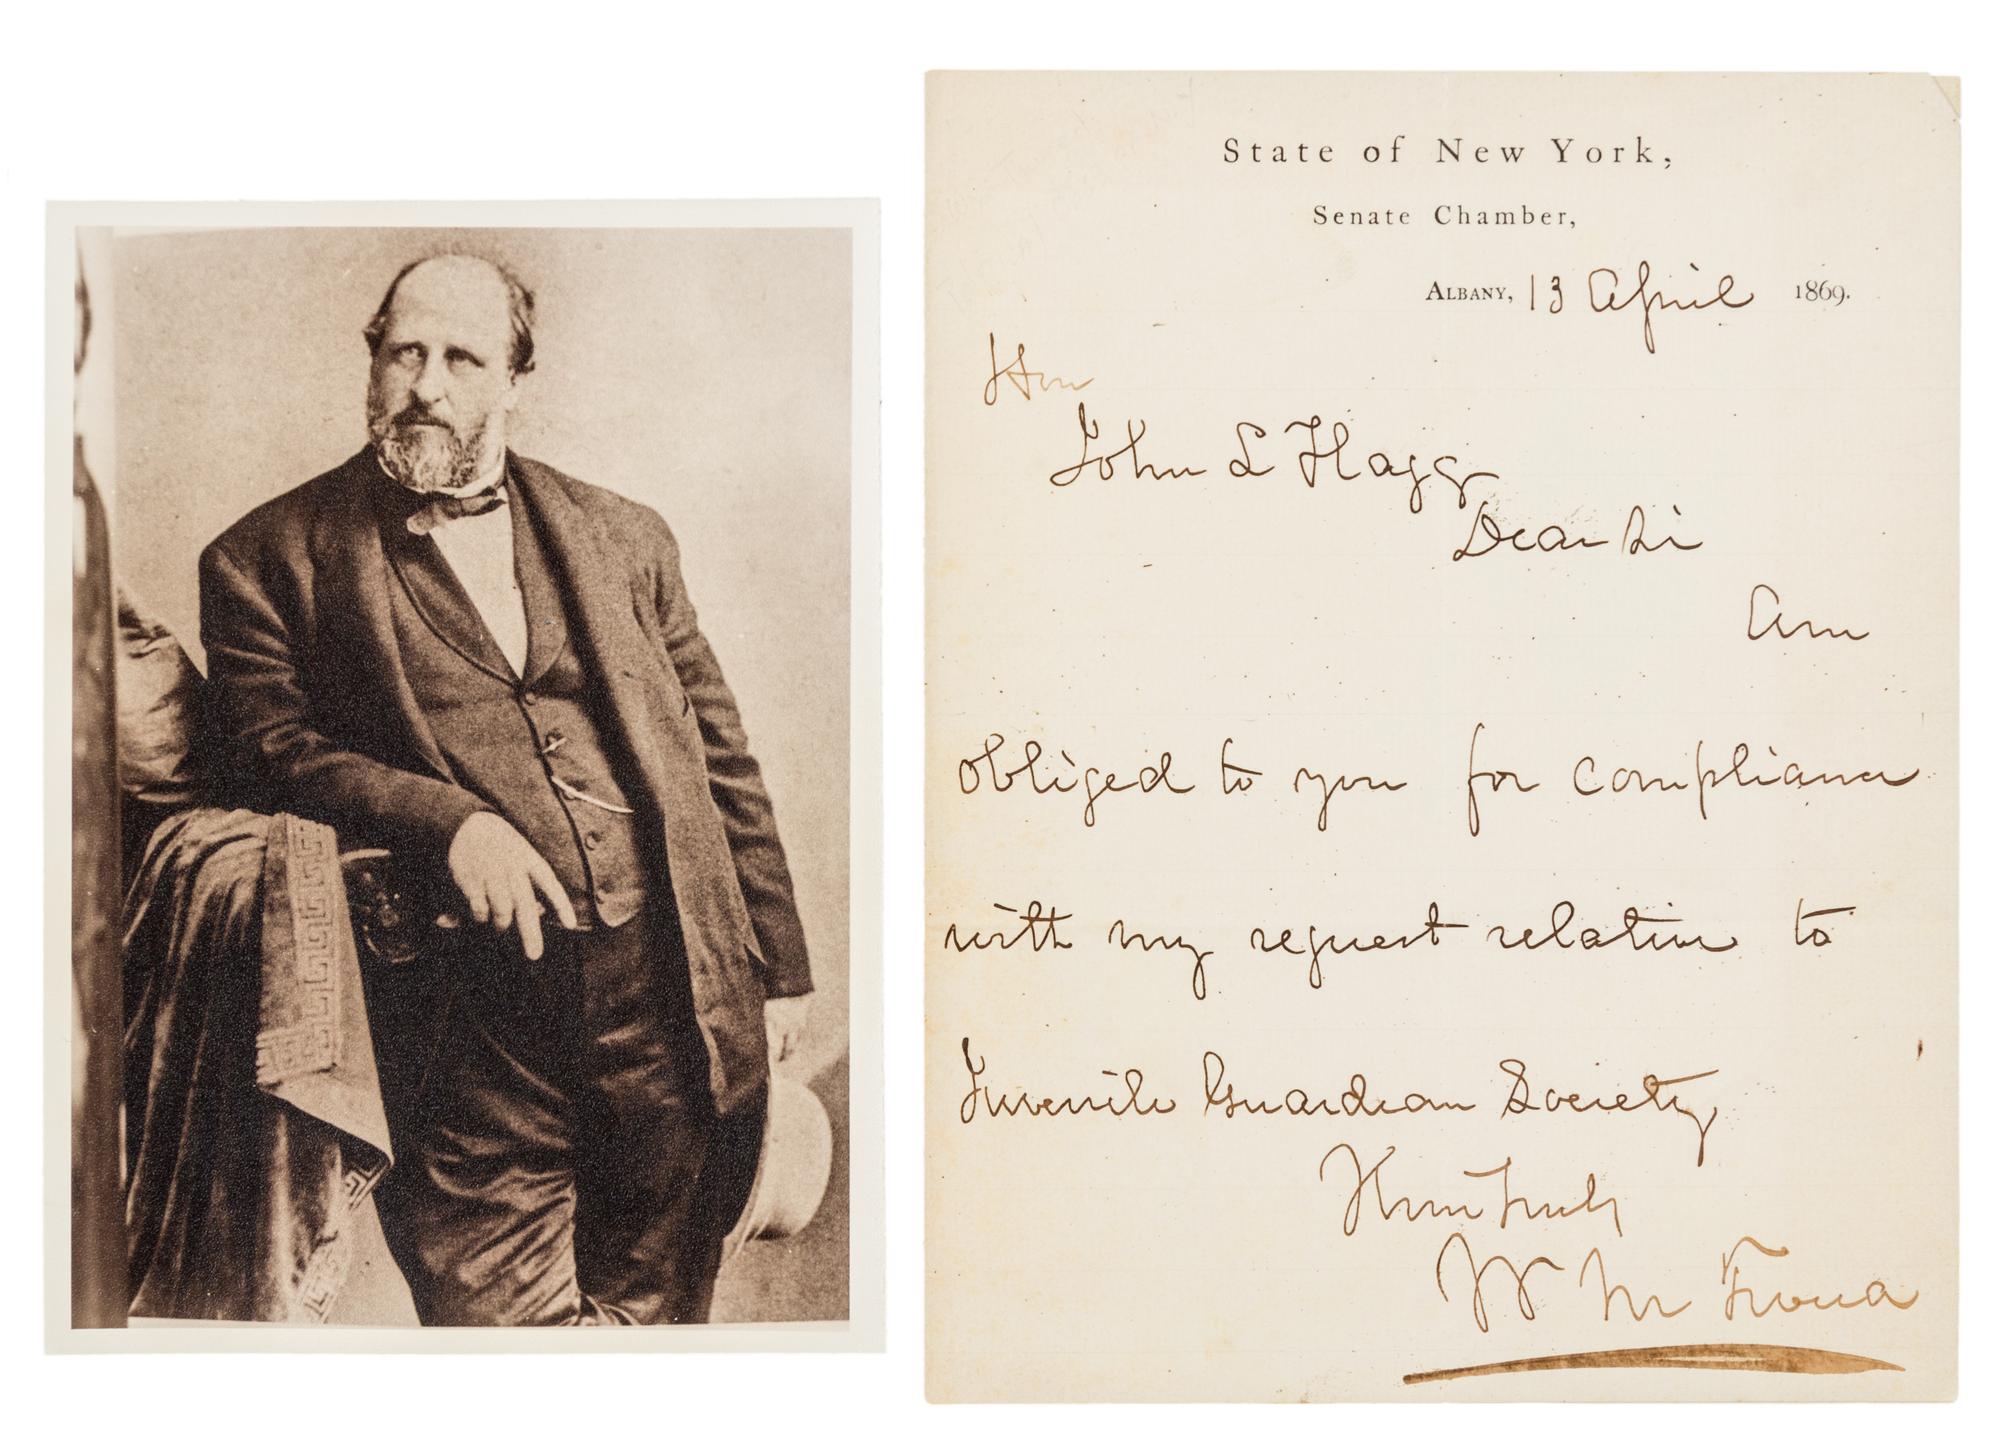 State of New York,
Senate Chamber,
Albany, 13 April 1869.
Hon
John L Flagg
Dear Sir
Am
obliged to you for compliance
with my request relative to
Juvenile Guardian Society
Very Truly
W M Tweed